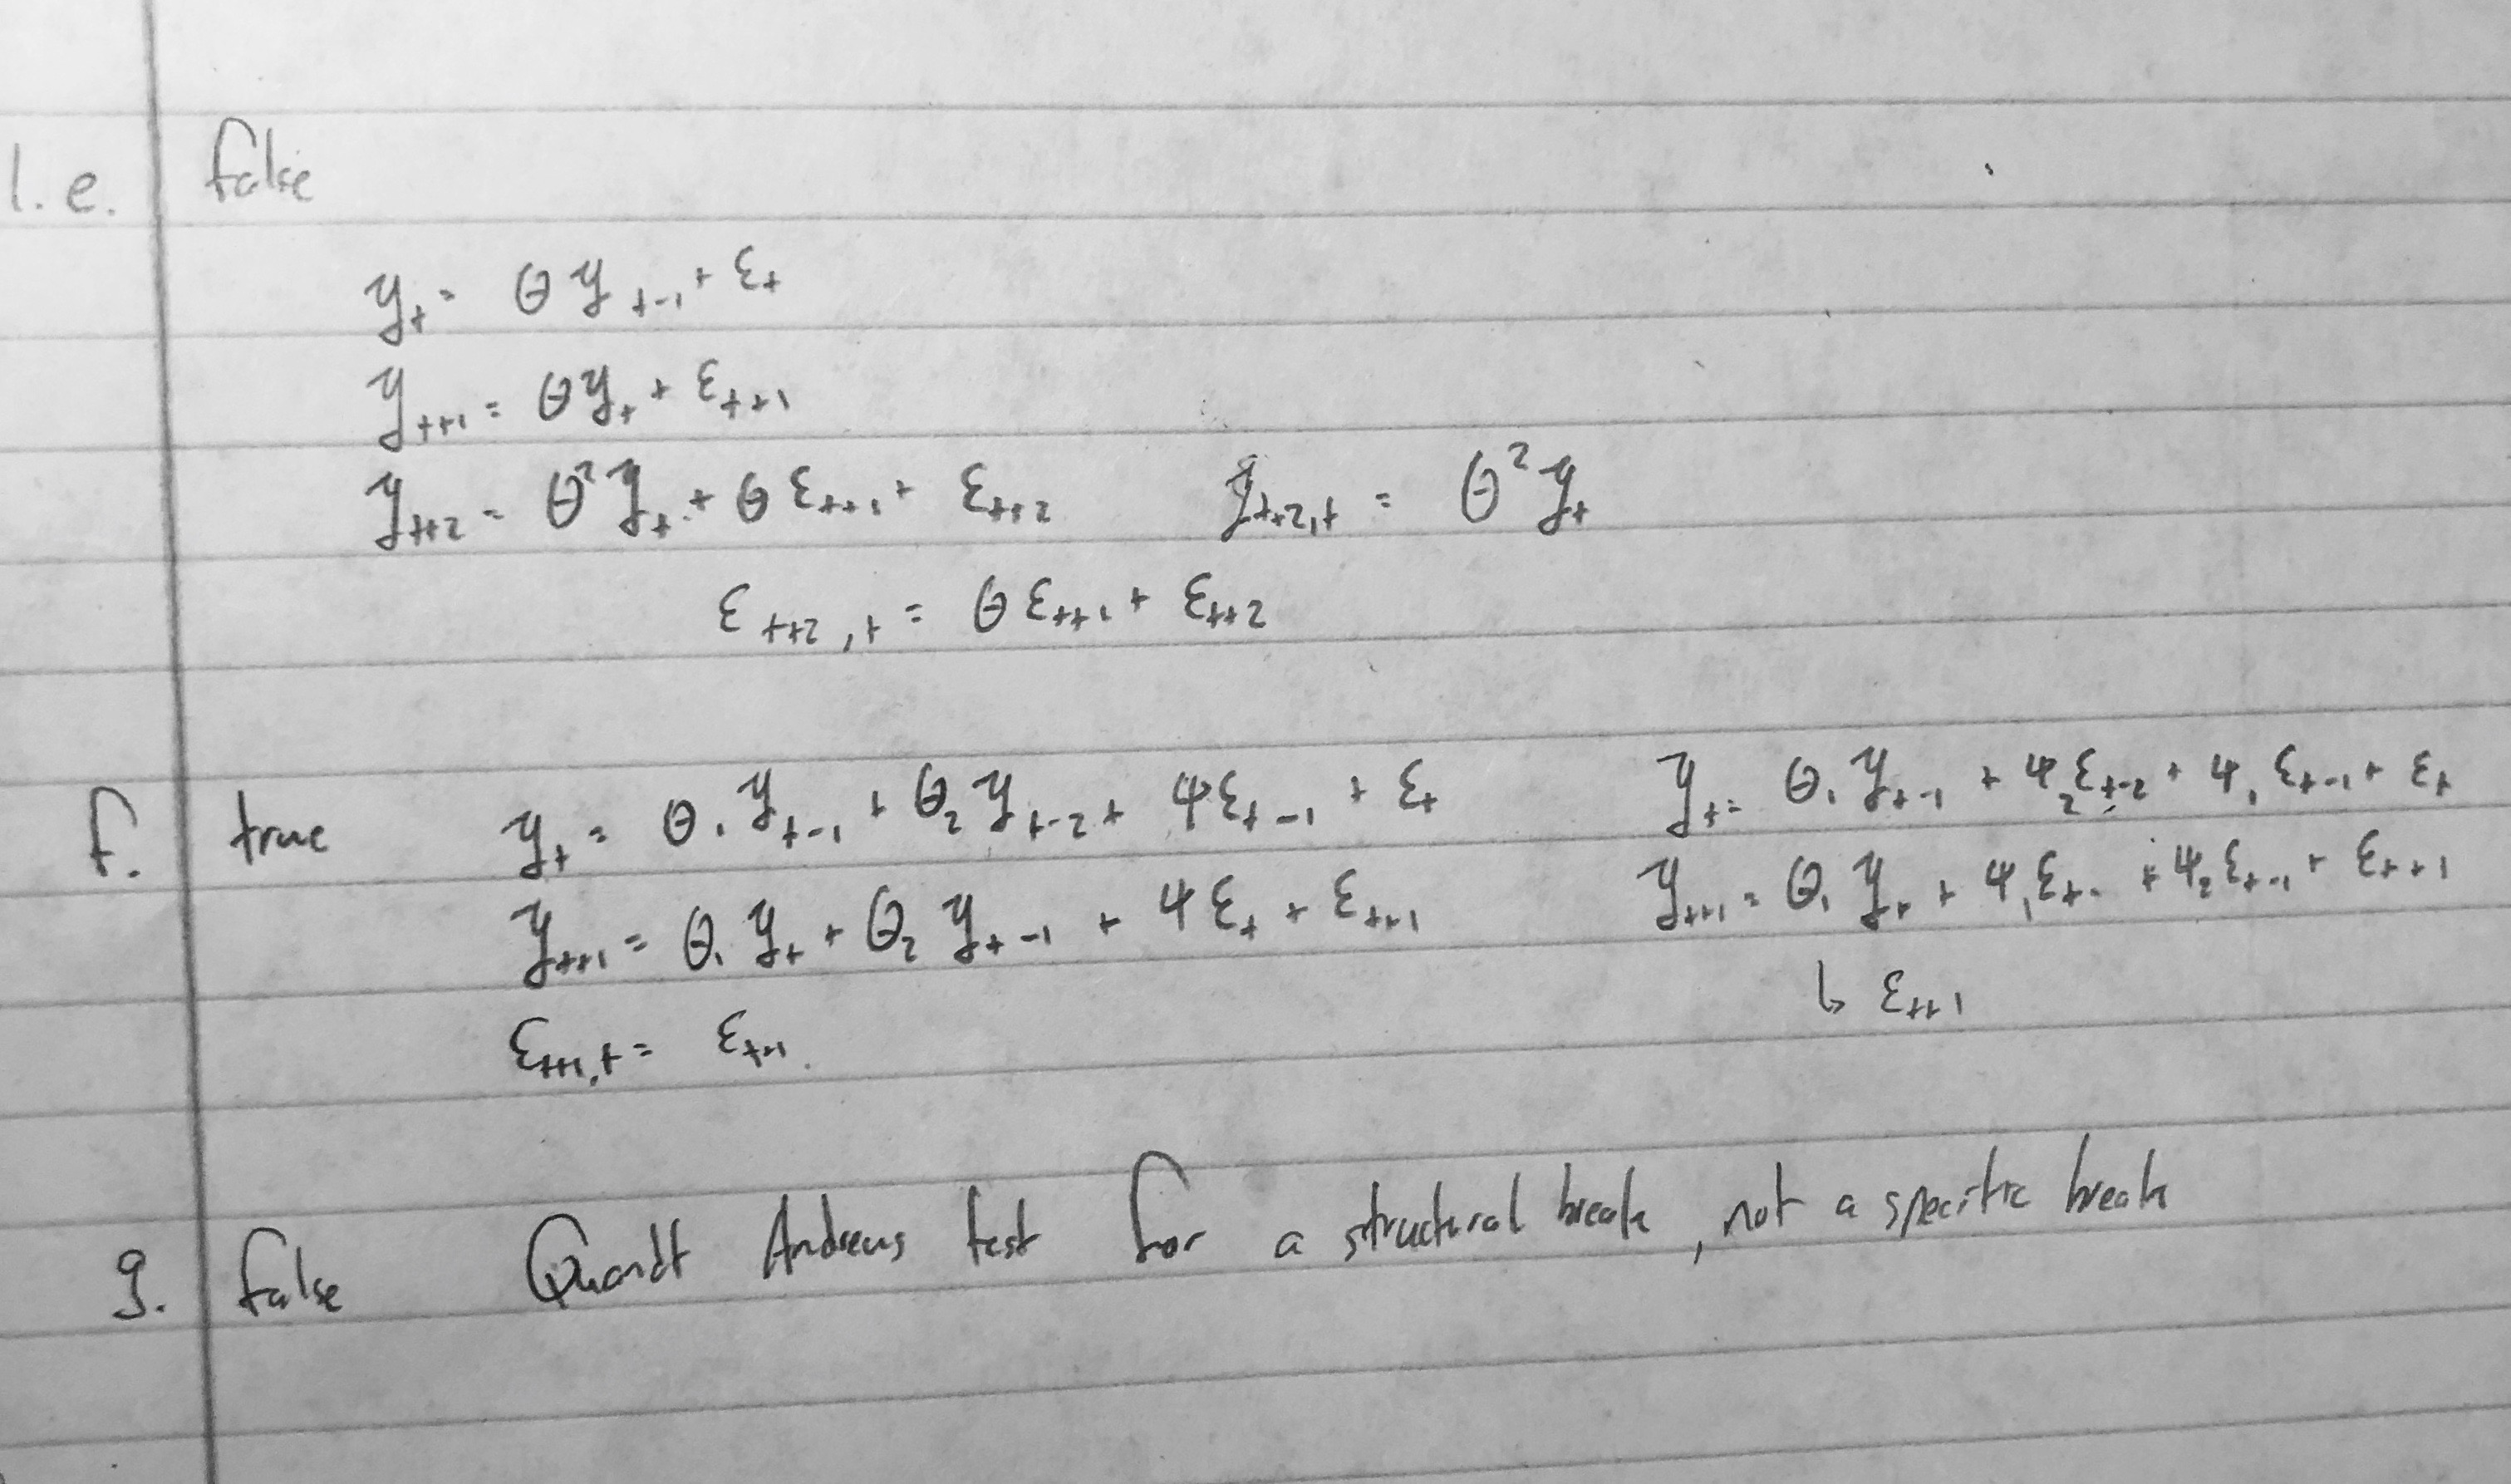 1.e. false
y_t = θ y_{t-1} + ε_t
y_{t+1} = θ y_t + ε_{t+1}
y_{t+2} = θ² y_t + θ ε_{t+1} + ε_{t+2} ŷ_{t+2,t} = θ² y_t
ε_{t+2,t} = θ ε_{t+1} + ε_{t+2}
f. true y_t = θ₁ y_{t-1} + θ₂ y_{t-2} + ψ ε_{t-1} + ε_t y_t = θ₁ y_{t-1} + ψ₂ ε_{t-2} + ψ₁ ε_{t-1} + ε_t
y_{t+1} = θ₁ y_t + θ₂ y_{t-1} + ψ ε_t + ε_{t+1} y_{t+1} = θ₁ y_t + ψ₁ ε_t + ψ₂ ε_{t-1} + ε_{t+1}
ε_{t+1,t} = ε_{t+1}. ↳ ε_{t+1}
g. false Quandt Andrews test for a structural break, not a specific break